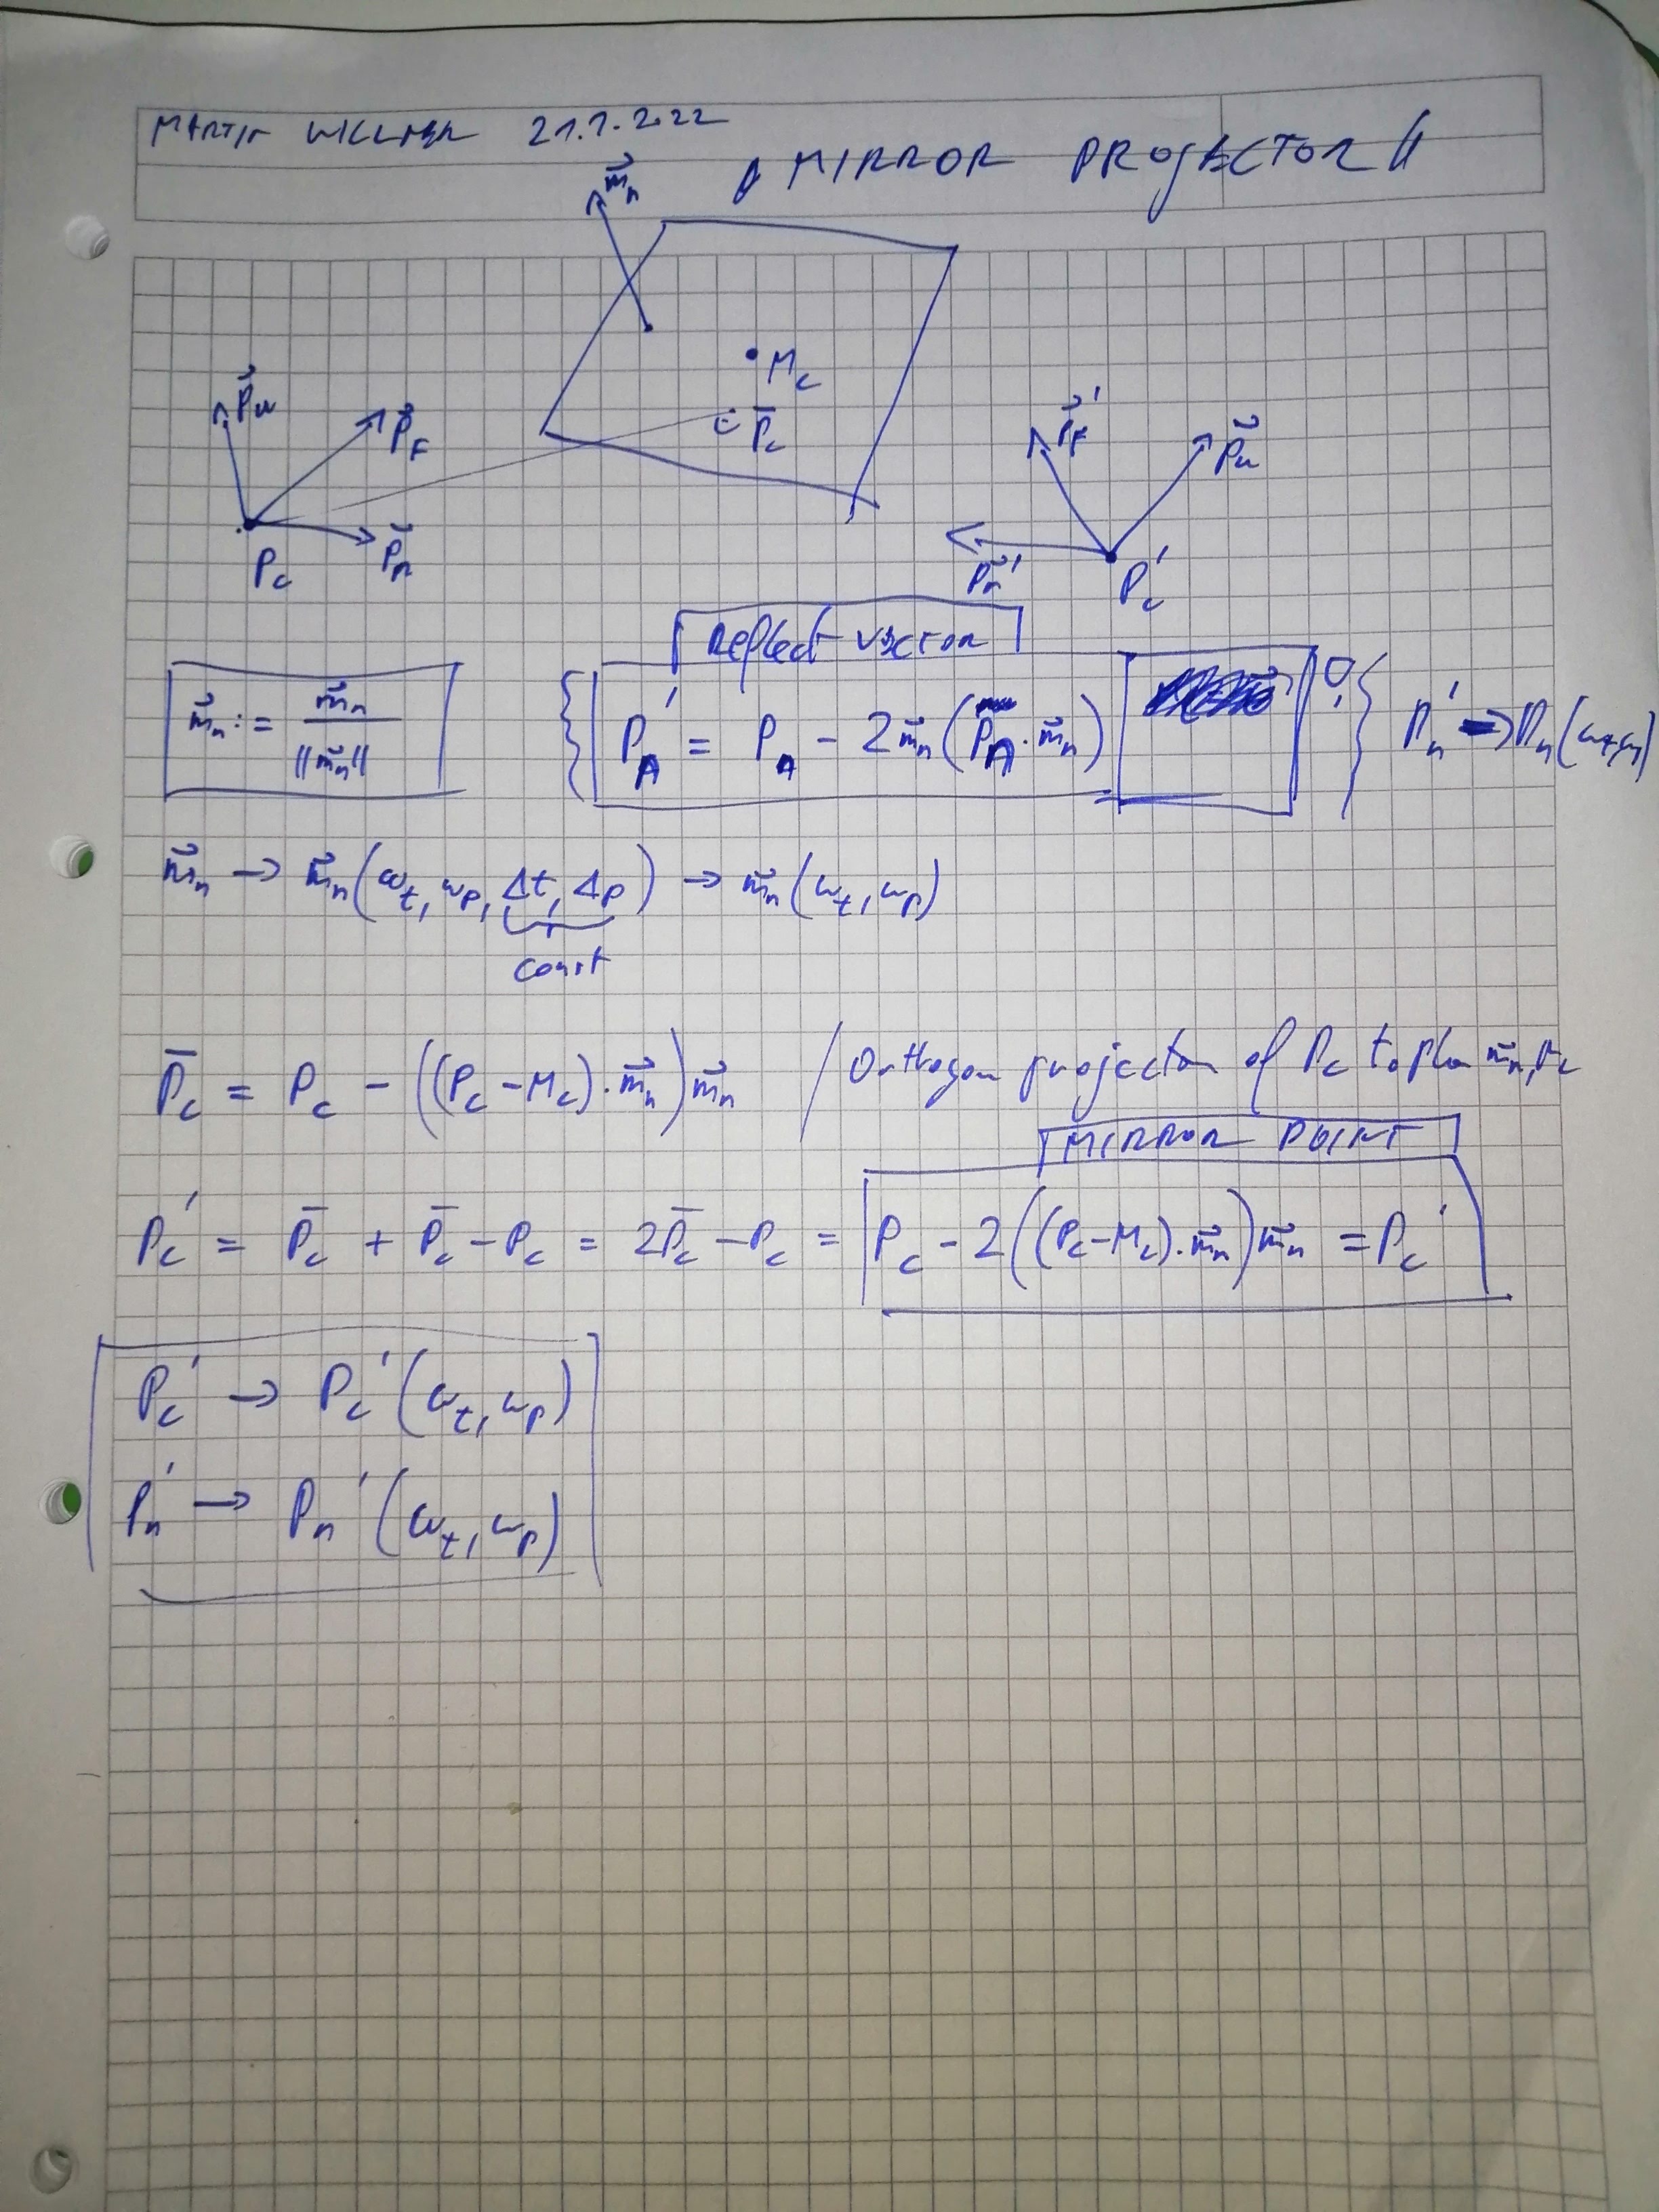 MARTIN WILLNER 21.1.2022
MIRROR PROJECTOR
m⃗ₙ
M_c
P̄_c
P⃗_u
P⃗_F
P⃗_R
P_c
P⃗_F'
P⃗_u
P⃗_R'
P_c'
Reflect vector
m⃗ₙ := m⃗ₙ / ||m⃗ₙ||
P_A' = P_A - 2m⃗ₙ(P_A · m⃗ₙ)
m⃗ₙ → m⃗ₙ(ω_t, ω_p, Δt, Δp) → m⃗ₙ(ω_t, ω_p)
const
P̄_c = P_c - ((P_c - M_c) · m⃗ₙ)m⃗ₙ / Orthogon projection of P_c to plan
MIRROR POINT
P_c' = P̄_c + P̄_c - P_c = 2P̄_c - P_c = P_c - 2((P_c - M_c) · m⃗ₙ)m⃗ₙ = P_c'
P_c' → P_c'(ω_t, ω_p)
Pₙ' → Pₙ'(ω_t, ω_p)